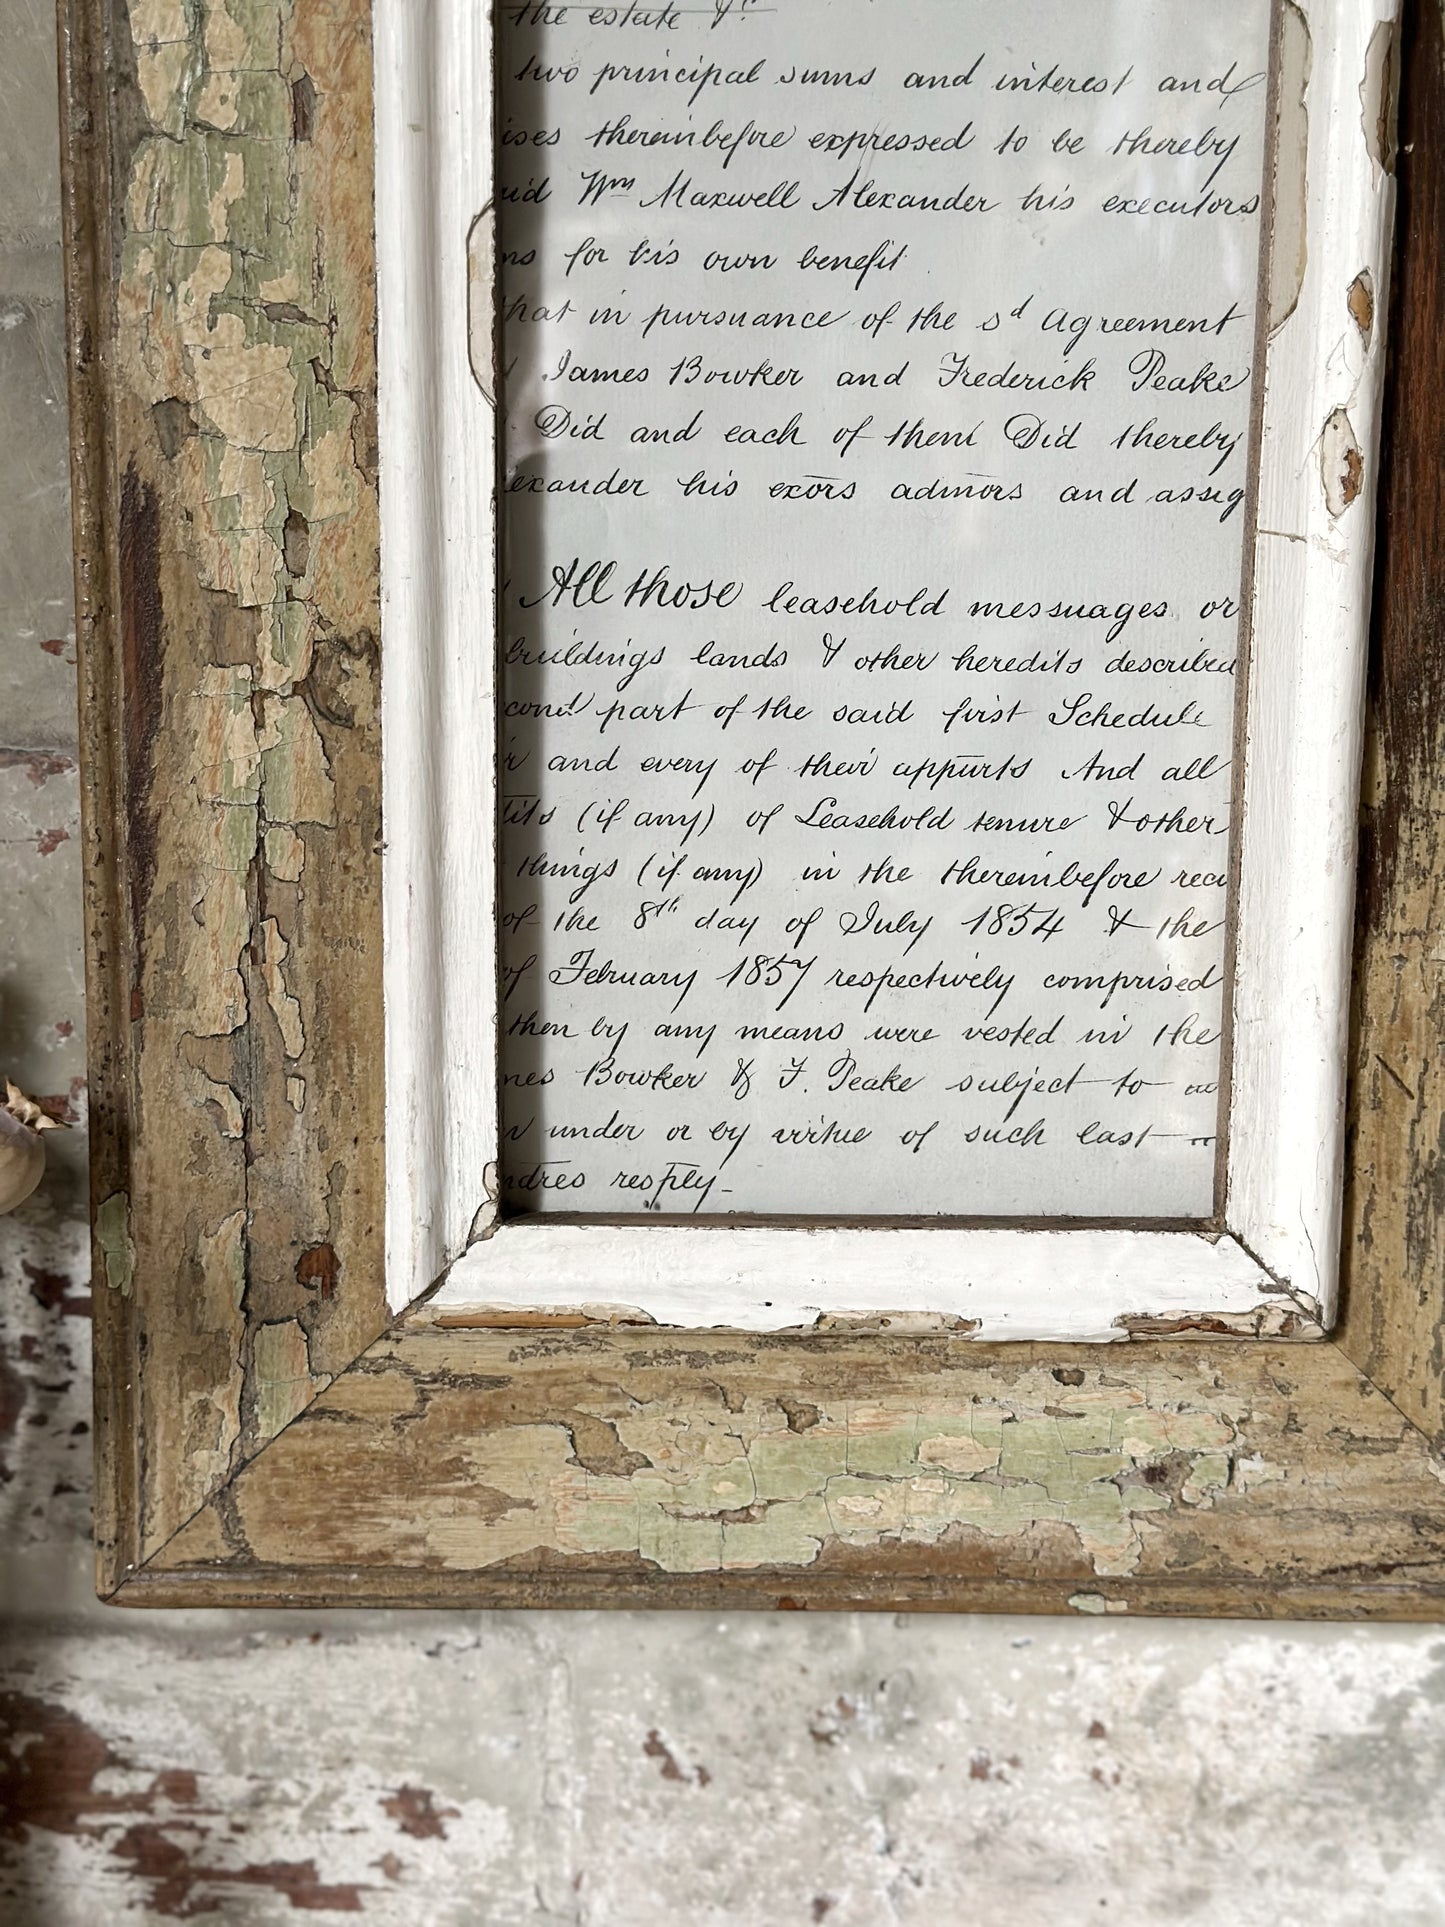 the estate &c
two principal sums and interest and
ises thereinbefore expressed to be thereby
aid Wm Maxwell Alexander his executors
ns for his own benefit
that in pursuance of the sd Agreement
James Bowker and Frederick Peake
Did and each of them Did thereby
lexander his exors admors and assig
All those leasehold messuages or
buildings lands & other heredits described
cond part of the said first Schedule
ir and every of their appurts And all
dits (if any) of Leasehold tenure & other
things (if any) in the thereinbefore reci
of the 8th day of July 1854 & the
of February 1857 respectively comprised
then by any means were vested in the
mes Bowker & F. Peake subject to
under or by virtue of such last
ndres resply